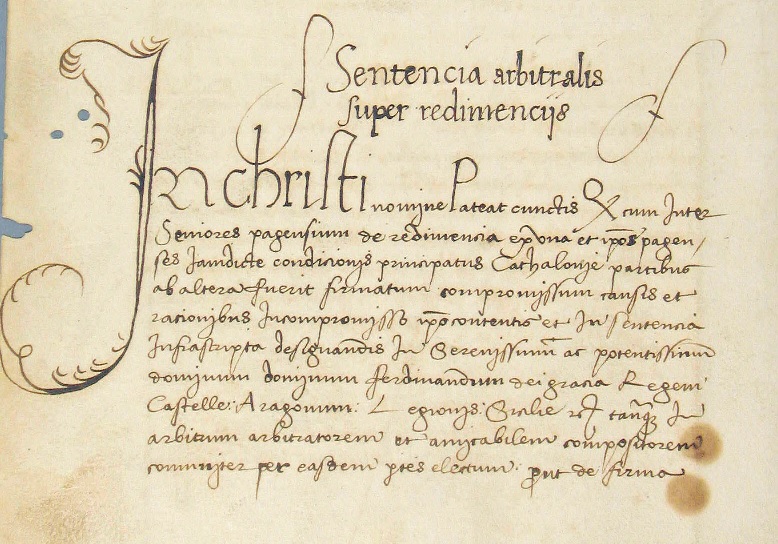 Sentencia arbitralis
super redimencijs
In christi nomine Pateat cunctis Qz cum Inter
Seniores pagensium de redimencia ex vna et ipos pagen/
ses Iamdicte condicionis principatus Cathalonie partibus
ab altera fuerit firmatum compromissum causis et
racionibus Incompromisso ipo contentis et In sentencia
Infrascripta designandis In Serenissimu ac potentissimu
dominum dominum ferdinandum dei gracia Regem
Castelle: Aragonum: Legionis: Sicilie tanqz In
arbitrum arbitratorem et amicabilem compositorem
comuniter per easdem ptes electum: put de firma